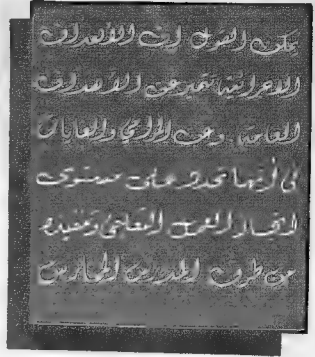 يمكن القول إن الأهداف
الاجرائية تتميز عن الأهداف
العامة وعن المرامي والغايات
في أنها تحدد على مستوى
انجاز الفعل التعليمي وتنفيذه
من طرف المدرس الممارس